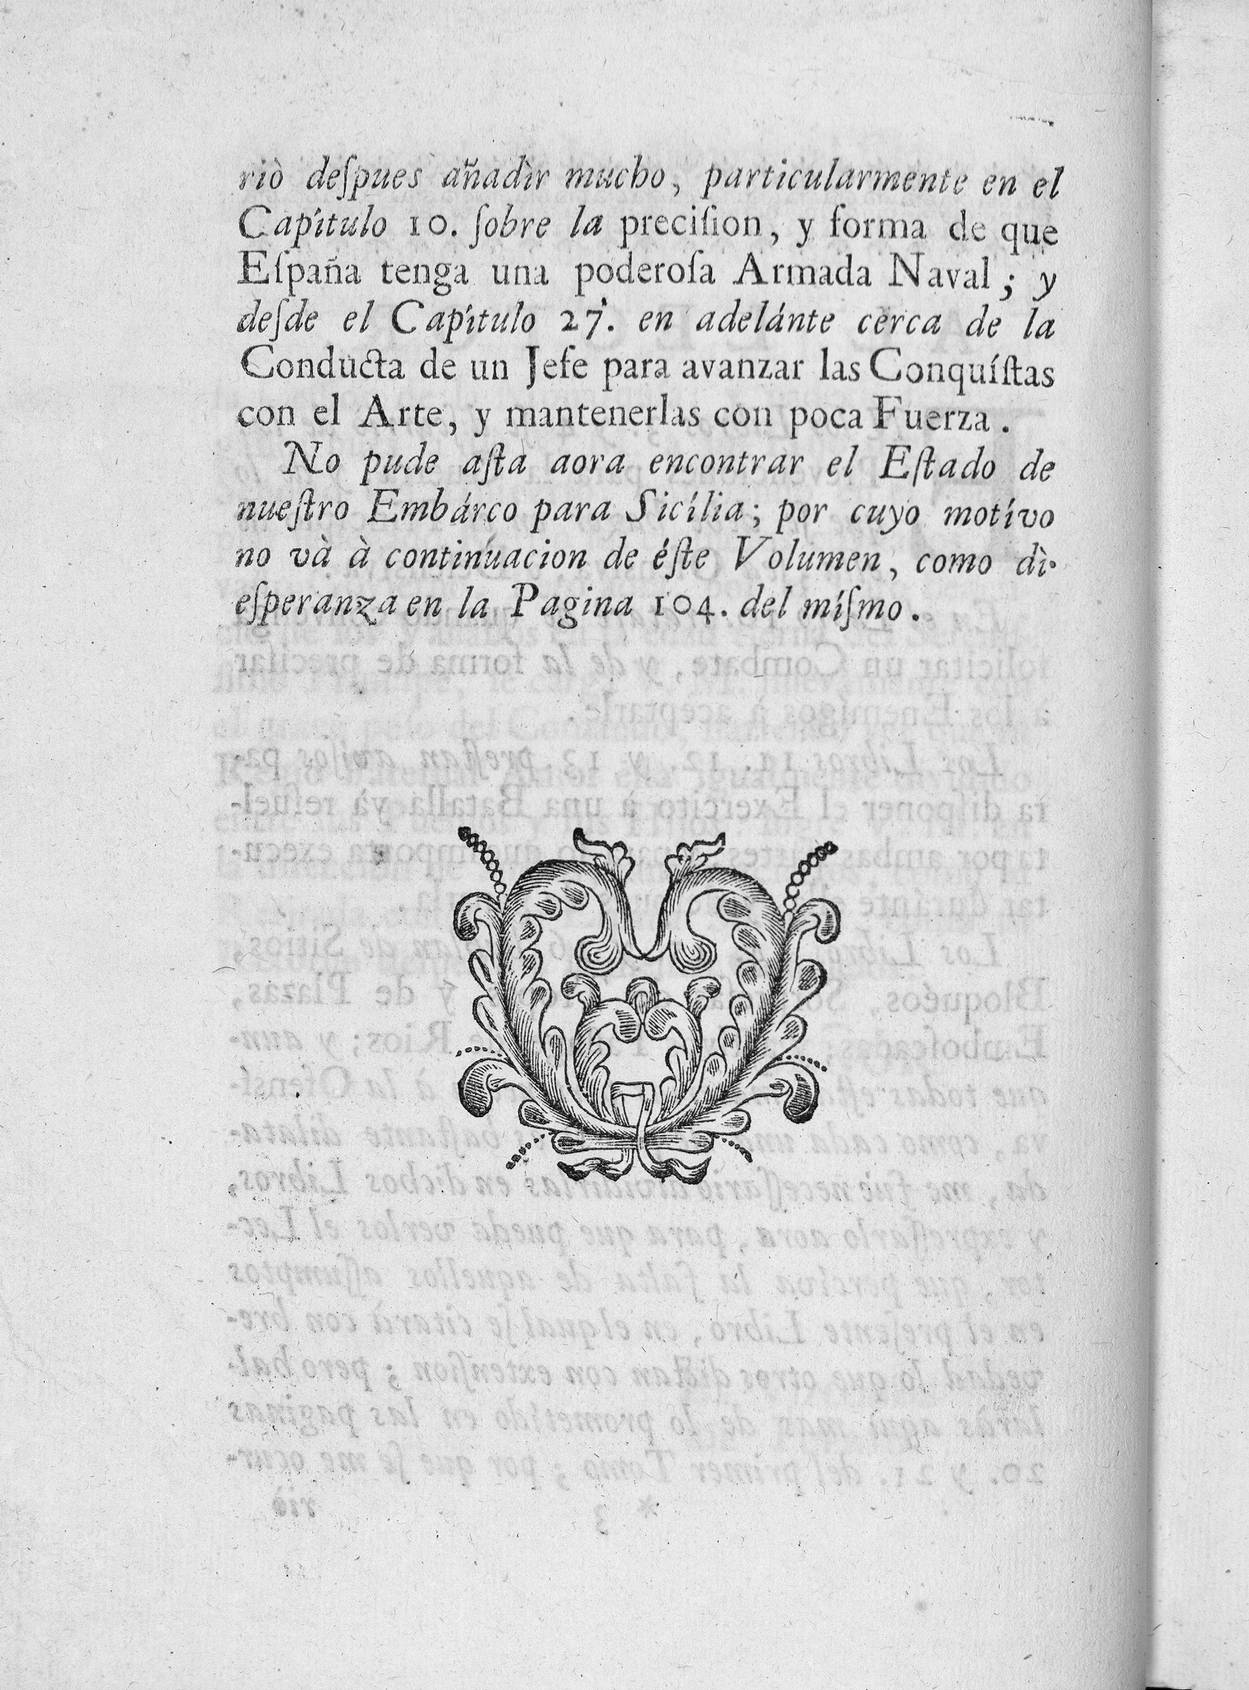 riò deſpues añadìr mucho, particularmente en el
Capítulo 10. ſobre la preciſion, y forma de que
Eſpaña tenga una poderoſa Armada Naval; y
deſde el Capítulo 27. en adelánte cerca de la
Conducta de un Jefe para avanzar las Conquíſtas
con el Arte, y mantenerlas con poca Fuerza.
No pude aſta aora encontrar el Eſtado de
nueſtro Embárco para Sicília; por cuyo motívo
no và à continúacion de éſte Volumen, como dì
eſperanza en la Pagina 104. del míſmo.